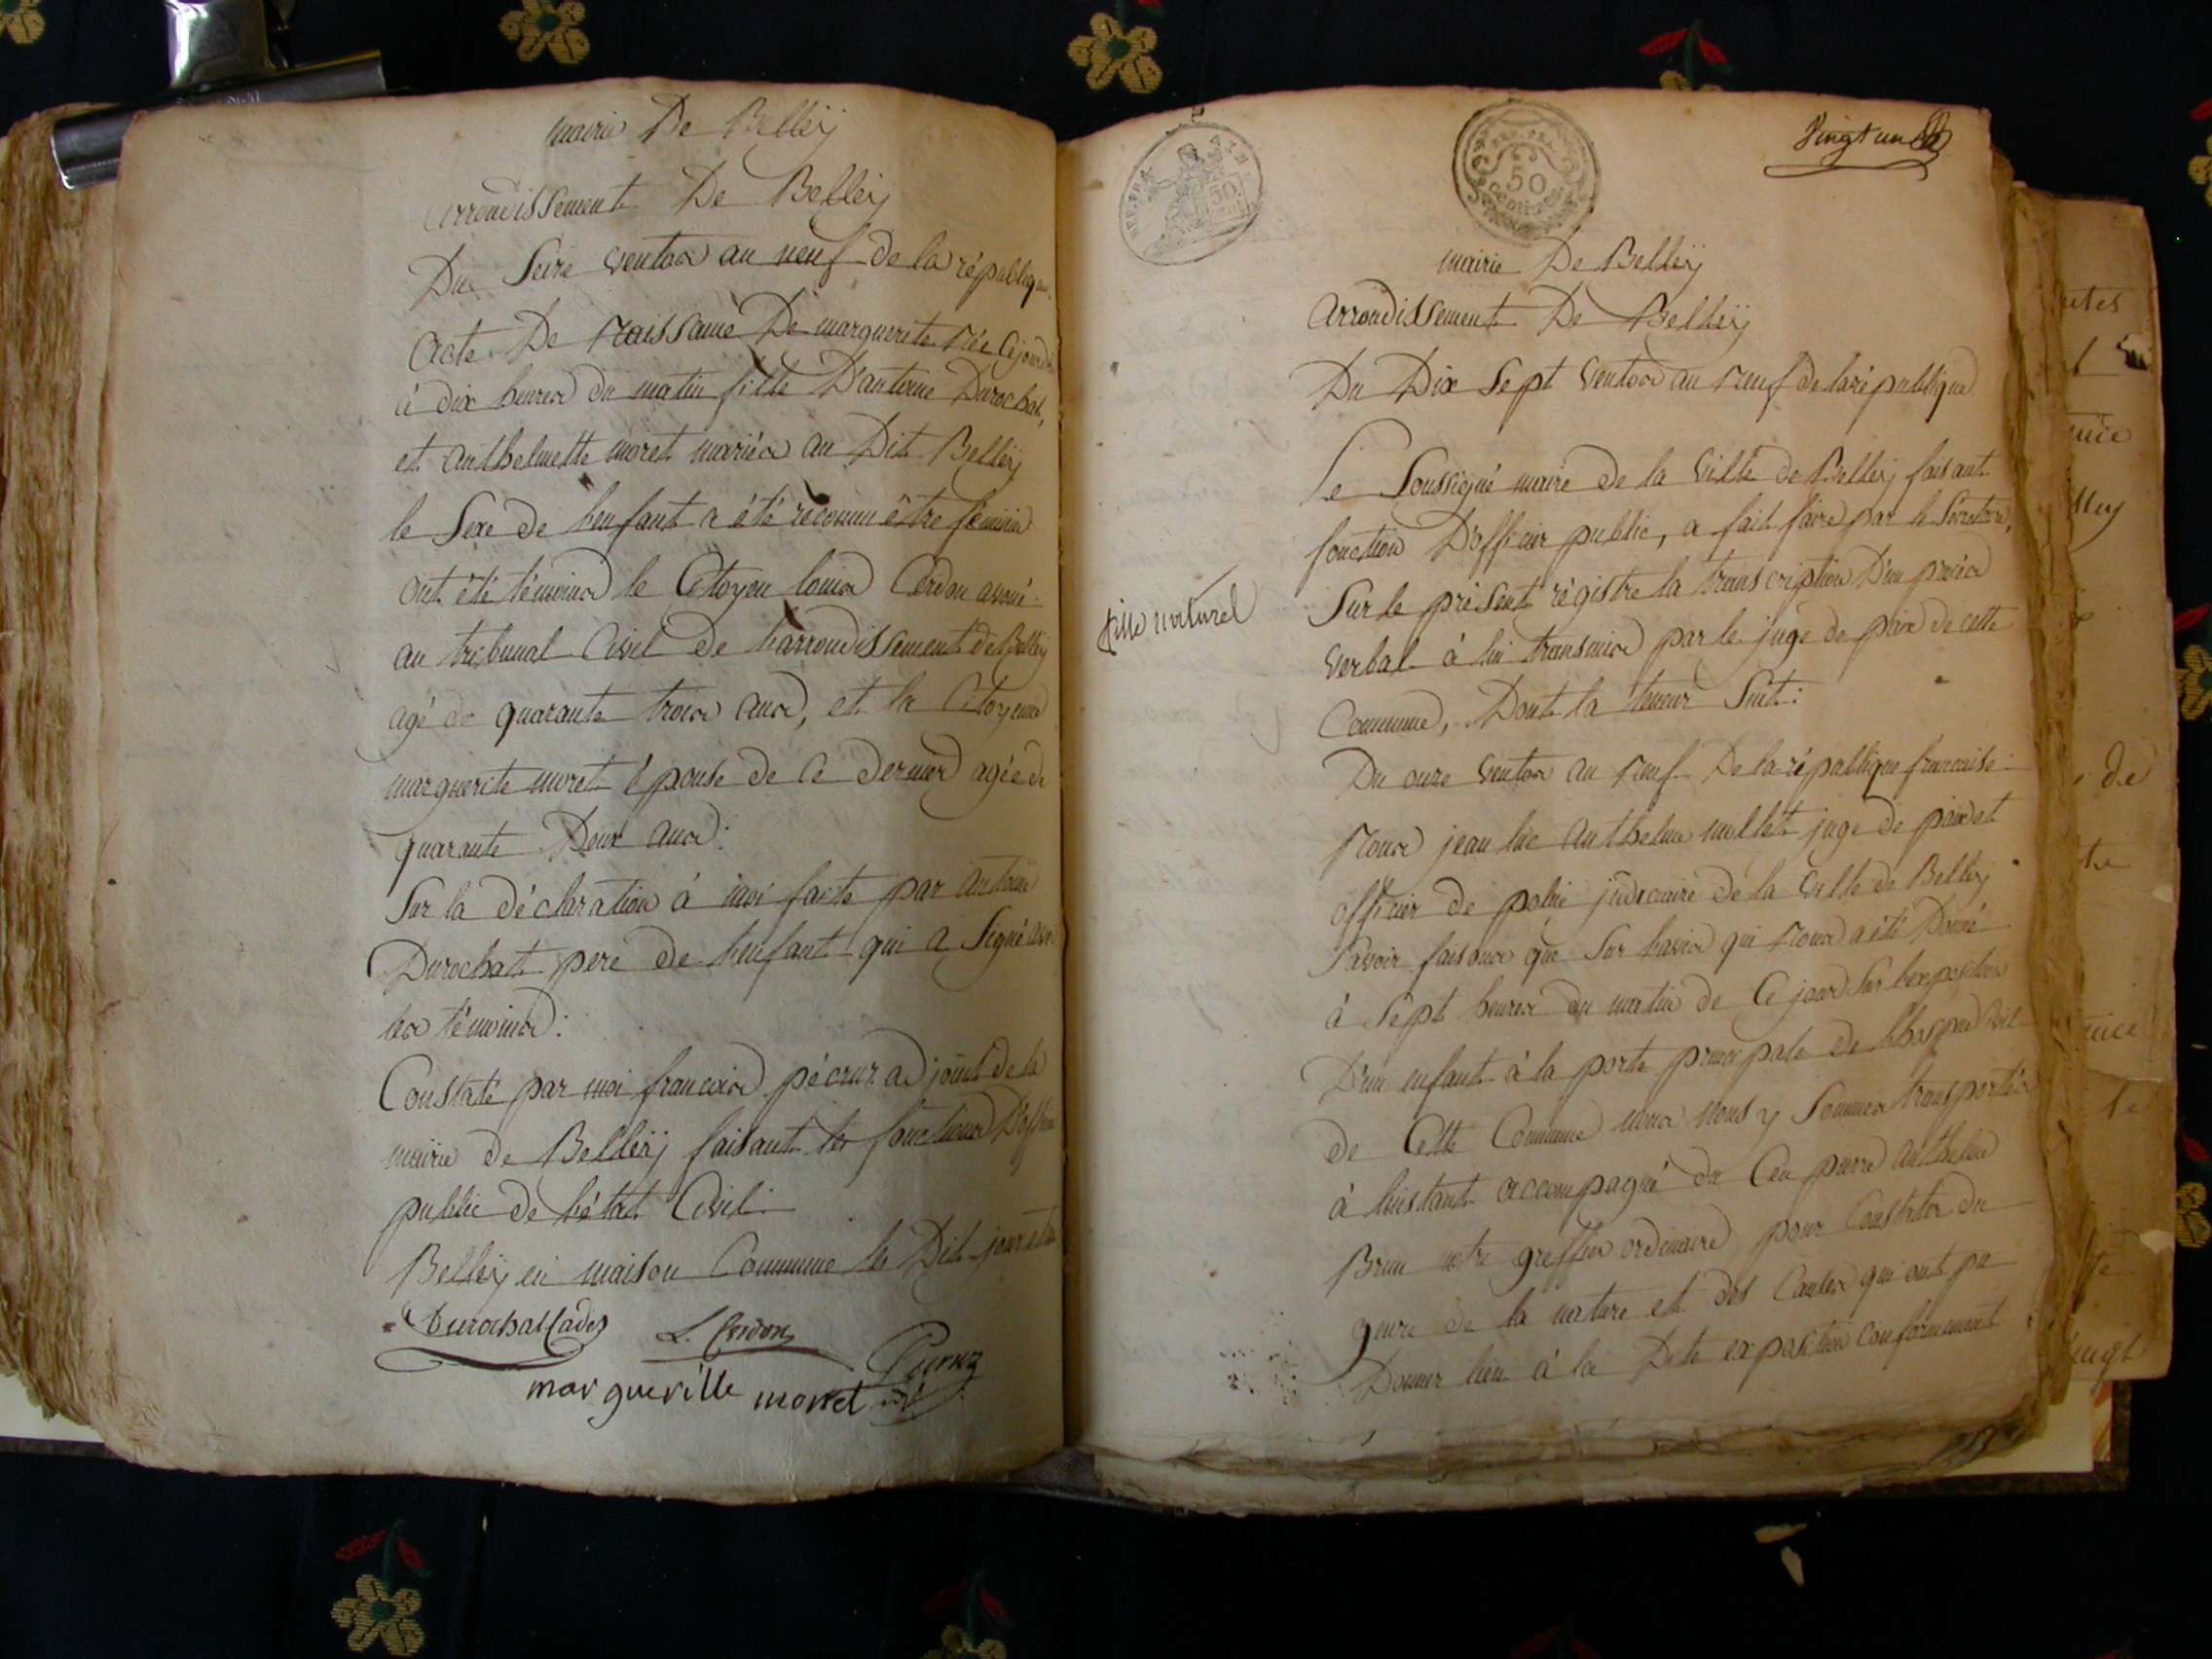 mairie De Belleÿ
arrondissement De Belleÿ
Du Seize ventose an neuf de la république
Acte De Naissance De marguerite Née Cejourd
à dix heures du matin fille D'antoine Durochat,
et anthelmette moret mariés au Dit Belleÿ
le Sexe de l'enfant a été reconnu être féminin
ont été témoins le Citoyen louis Cerdon avoué
au tribunal Civil de l'arrondissement de Belleÿ
agé de quarante trois ans, et la Citoyenne
marguerite moret épouse de ce dernier agée de
quarante Deux ans:
Sur la déclaration à moi faite par antoine
Durochat pere de l'enfant qui a Signé avec
les témoins:
Constaté par moi francois pécruz adjoint de la
mairie de Belleÿ faisant les fonctions D'officier
public de l'état Civil:
Belleÿ en maison Commune le Dit jour et an
Durochat L. Cerdon
marguerille morret
Vingt un
REP. FRA. 50
50 centimes
mairie De Belleÿ
arrondissement De Belleÿ
Du Dix Sept ventose an Neuf de la république
Le Soussigné maire de la Ville de Belleÿ faisant
fonction D'officier public, a fait faire par le Secrétaire,
Sur le présent régistre la transcription D'un procès
fille naturel
Verbal à lui transmis par le juge de paix de cette
Commune, Dont la teneur Suit:
Du onze ventose an Neuf De la république francaise:
Nous jean luc anthelme mollet juge de paix et
officier de police judiciaire de la Ville de Belleÿ
Savoir faisons que Sur l'avis qui Nous a été Donné
à Sept heures du matin de Ce jour Sur l'exposition
D'un enfant à la porte principale de l'hospice Civil
de Cette Commune nous nous y Sommes transportés
à l'instant accompagné du Cen pierre anthelme
Brun notre greffier ordinaire pour Constater du
genre de la nature et des Causes qui ont pu
Donner lieu à la Dite exposition Conformément